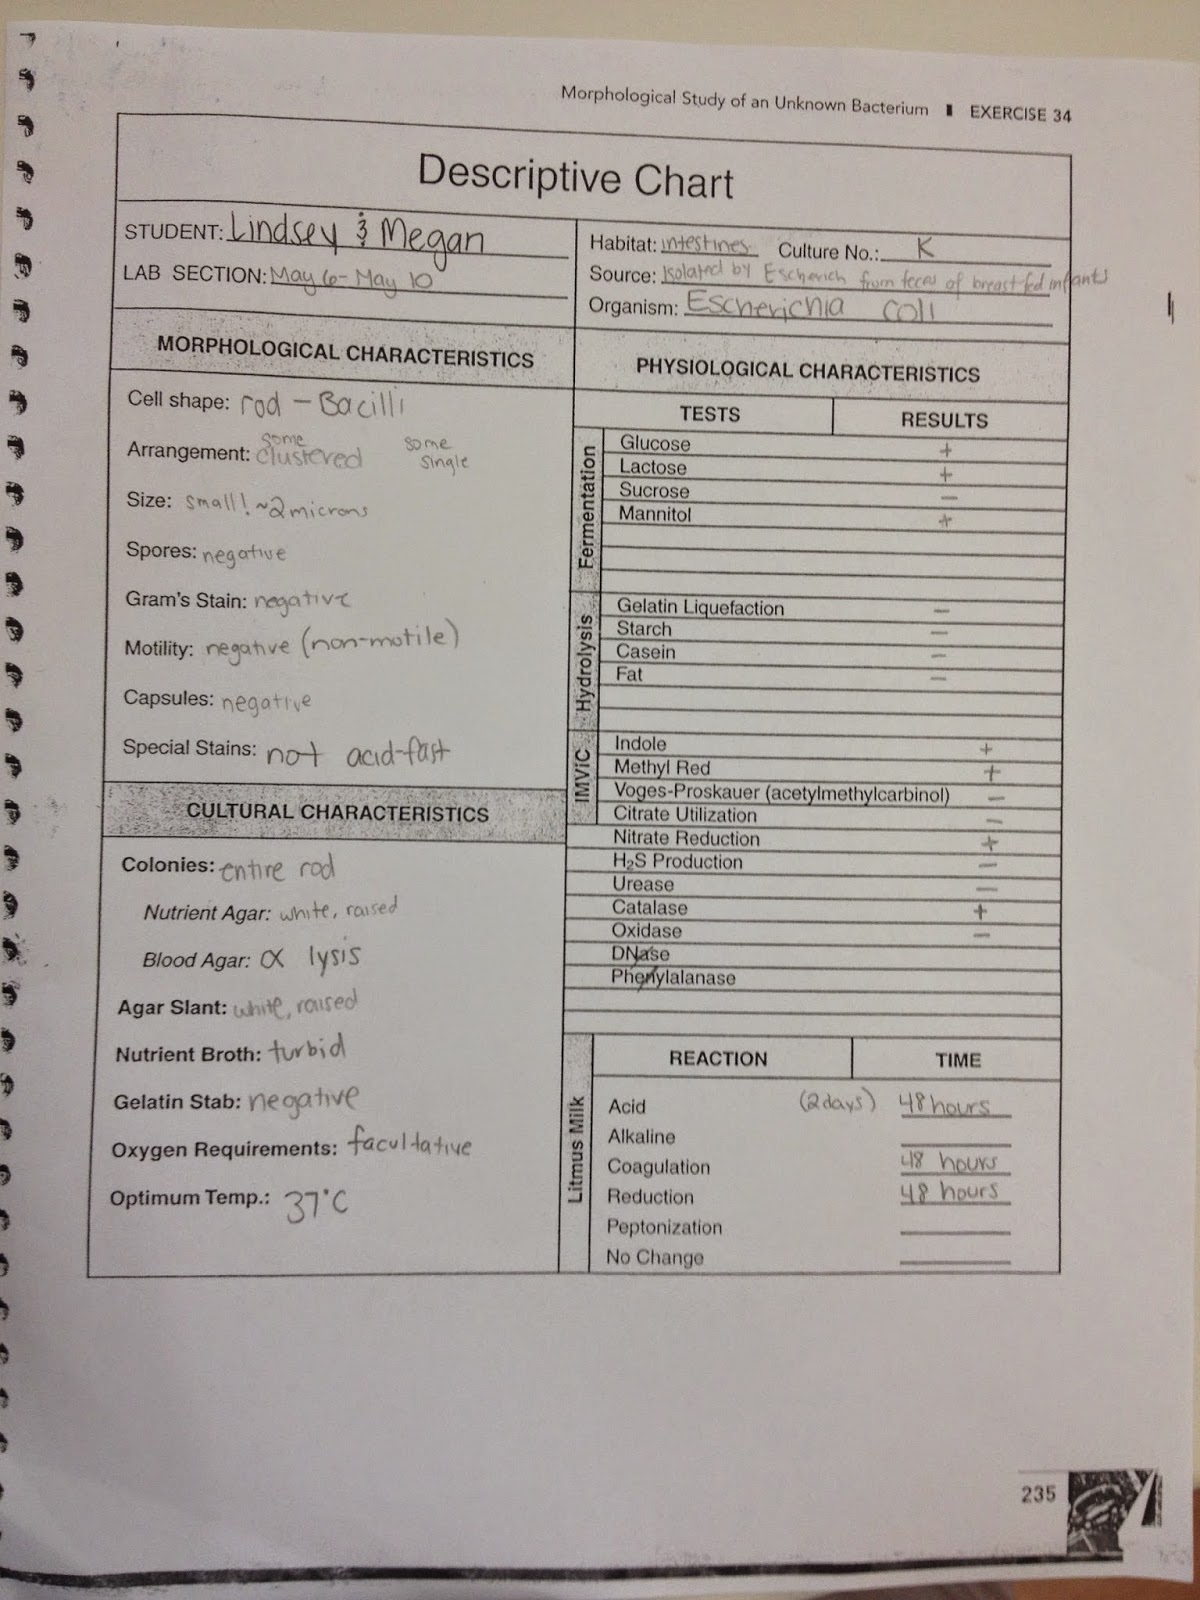 Morphological Study of an Unknown Bacterium ▮ EXERCISE 34
Descriptive Chart
STUDENT: Lindsey & Megan
LAB SECTION: May 6 - May 10
Habitat: intestines Culture No.: K
Source: Isolated by Escherich from feces of breastfed infants
Organism: Escherichia coli
MORPHOLOGICAL CHARACTERISTICS
Cell shape: rod - Bacilli
Arrangement: some clustered some single
Size: small! ~2 microns
Spores: negative
Gram's Stain: negative
Motility: negative (non-motile)
Capsules: negative
Special Stains: not acid-fast
CULTURAL CHARACTERISTICS
Colonies: entire rod
Nutrient Agar: white, raised
Blood Agar: α lysis
Agar Slant: white, raised
Nutrient Broth: turbid
Gelatin Stab: negative
Oxygen Requirements: facultative
Optimum Temp.: 37°C
PHYSIOLOGICAL CHARACTERISTICS
TESTS RESULTS
Fermentation
Glucose +
Lactose +
Sucrose −
Mannitol +
Hydrolysis
Gelatin Liquefaction −
Starch −
Casein −
Fat −
IMViC
Indole +
Methyl Red +
Voges-Proskauer (acetylmethylcarbinol) −
Citrate Utilization −
Nitrate Reduction +
H₂S Production −
Urease −
Catalase +
Oxidase −
DNase
Phenylalanase
Litmus Milk
REACTION TIME
Acid (2 days) 48 hours
Alkaline
Coagulation 48 hours
Reduction 48 hours
Peptonization
No Change
235